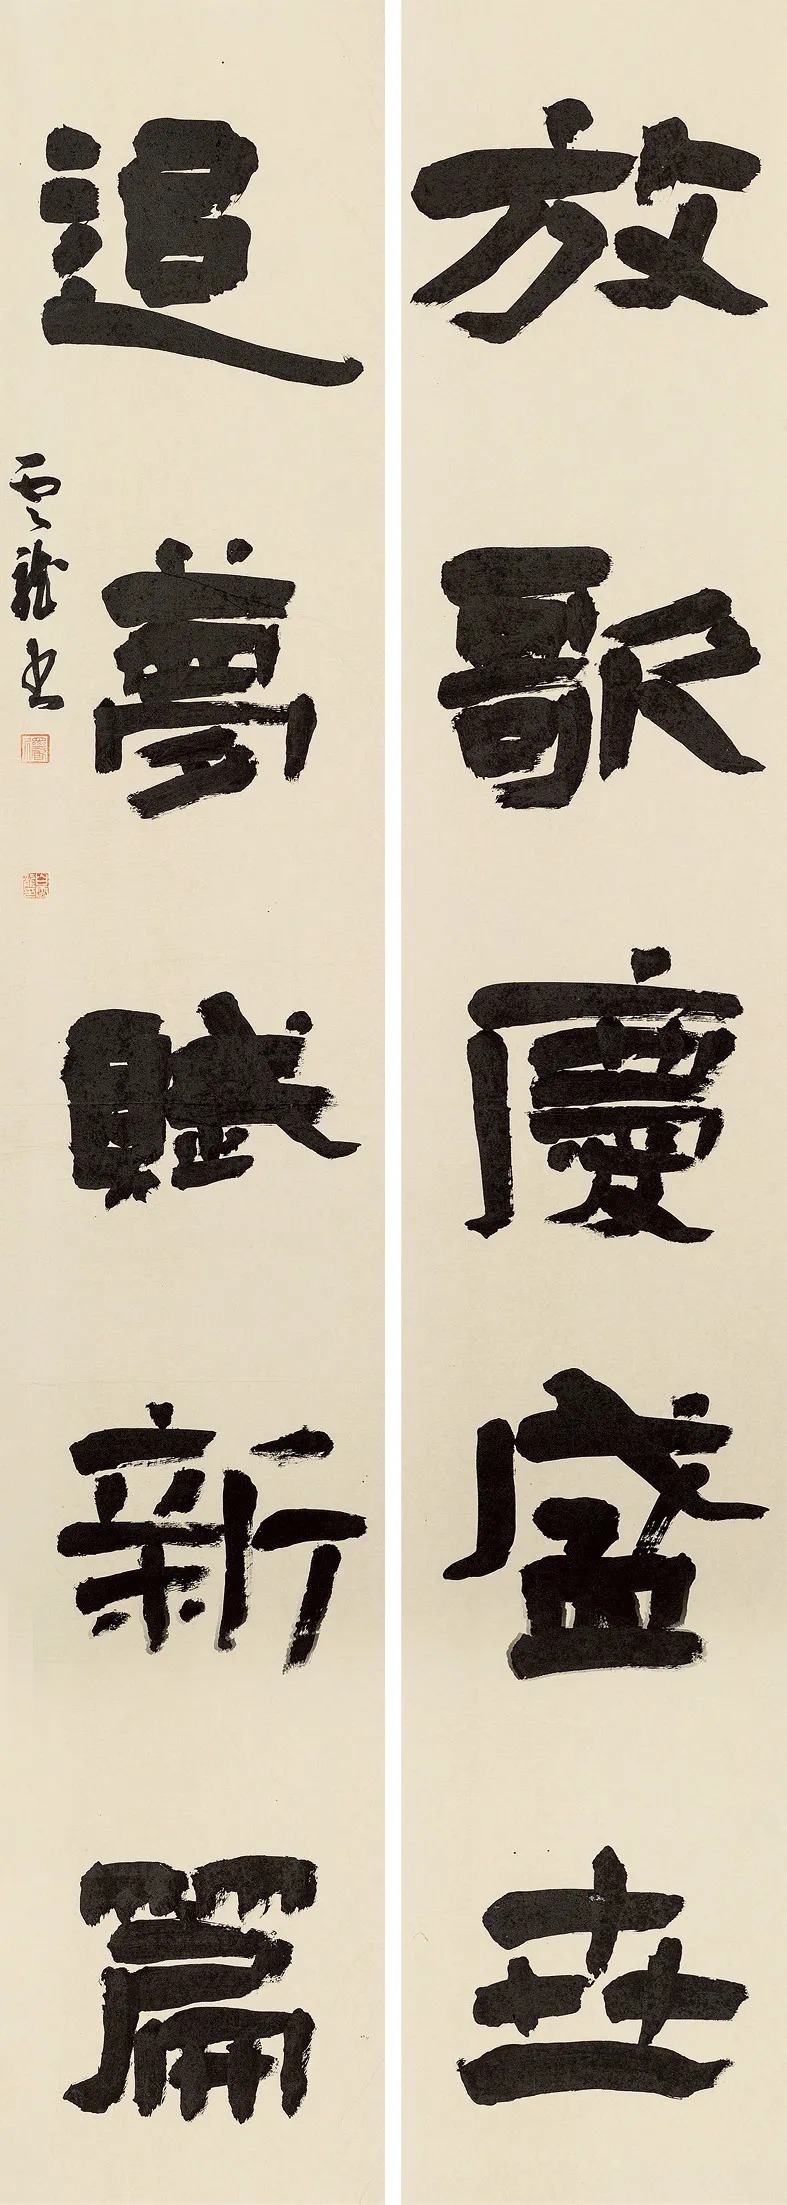 放歌慶盛世
追夢賦新篇
雲龍書